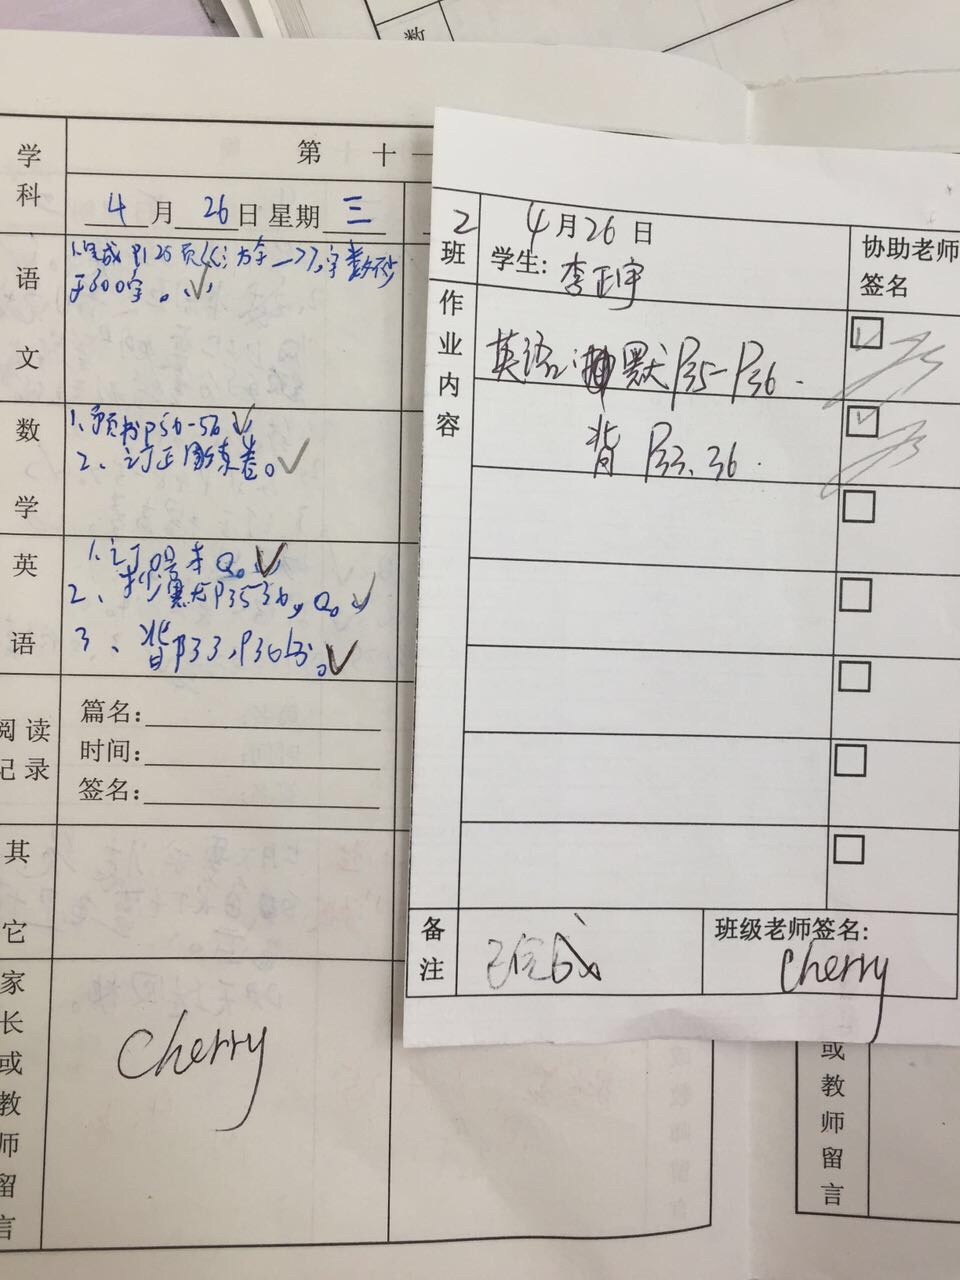 数
学科
第 十一
4月 26日 星期 三
语文
于600字。
数学
1、预习P56-56
2、订正
英语
1、订
2、抄默P35 36,
3、背P33,P36
阅读记录
篇名:
时间:
签名:
其它
家长或教师留言
Cherry
2班
4月26日
学生: 李正宇
协助老师签名
作业内容
英语: 默P35-P36.
背 P33. 36.
备注
已完成
班级老师签名:
Cherry
或教师留言